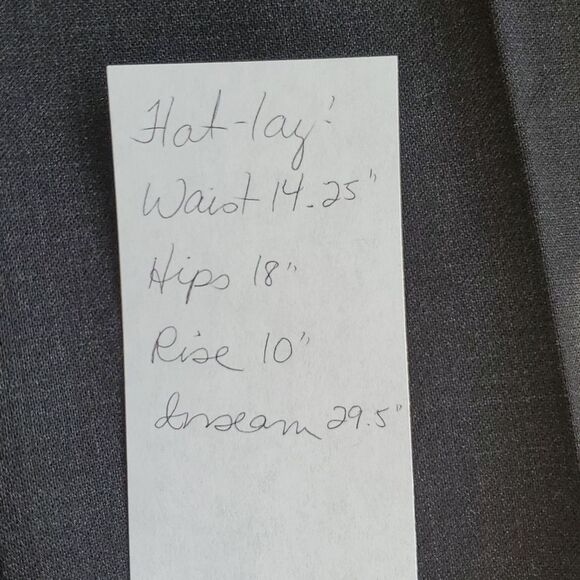 Flat-lay:
Waist 14.25"
Hips 18"
Rise 10"
Inseam 29.5"